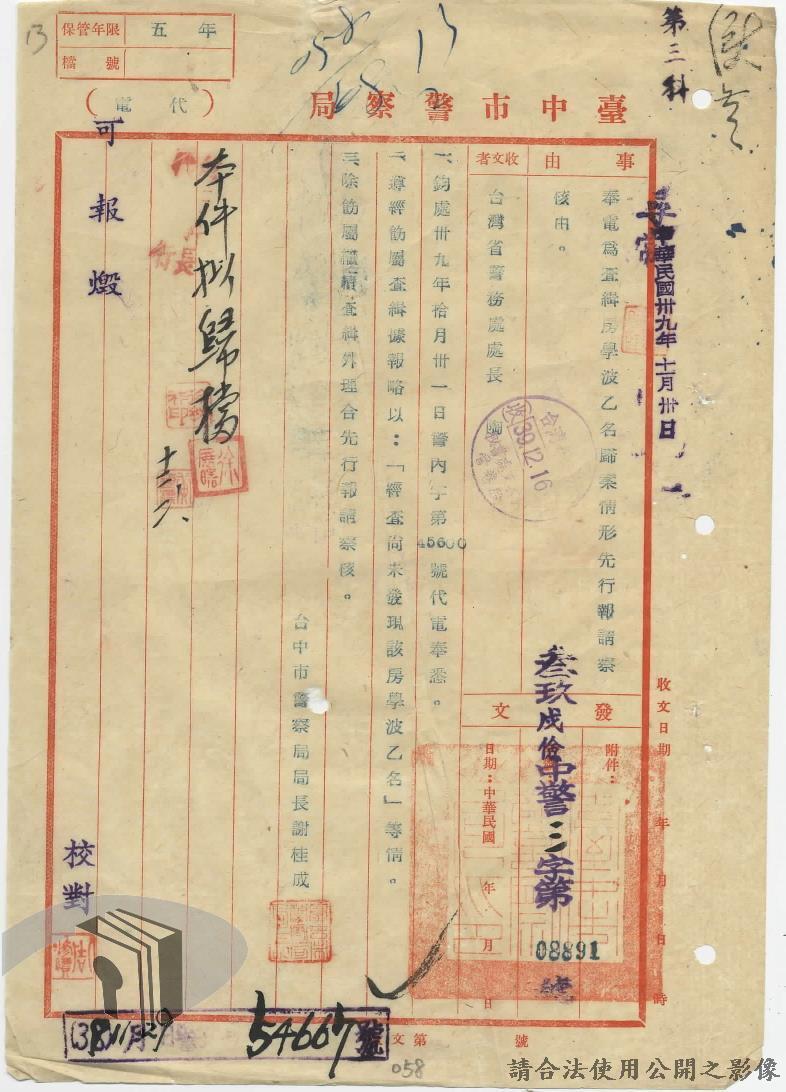 保管年限 五年
檔號
臺中市警察局
(代電)
第三科
中華民國卅九年十一月卅日
事由
奉電為查緝房學波乙名歸案情形先行報請察
核由。
收文者
台灣省警務處處長
39.12.16
發文
附件：
日期：中華民國 年 月 日
叁玖戌儉中警三字第
08891
號
一、鈞處卅九年拾月卅一日警內字第45600號代電奉悉。
二、遵經飭屬查緝據報略以：「經查尚未發現該房學波乙名」等情。
三、除飭屬繼續查緝外理合先行報請察核。
台中市警察局局長謝桂成
本件擬歸檔
可報燬
校對
收文日期 年 月 日 時
文第 號
54667號
058
13
請合法使用公開之影像